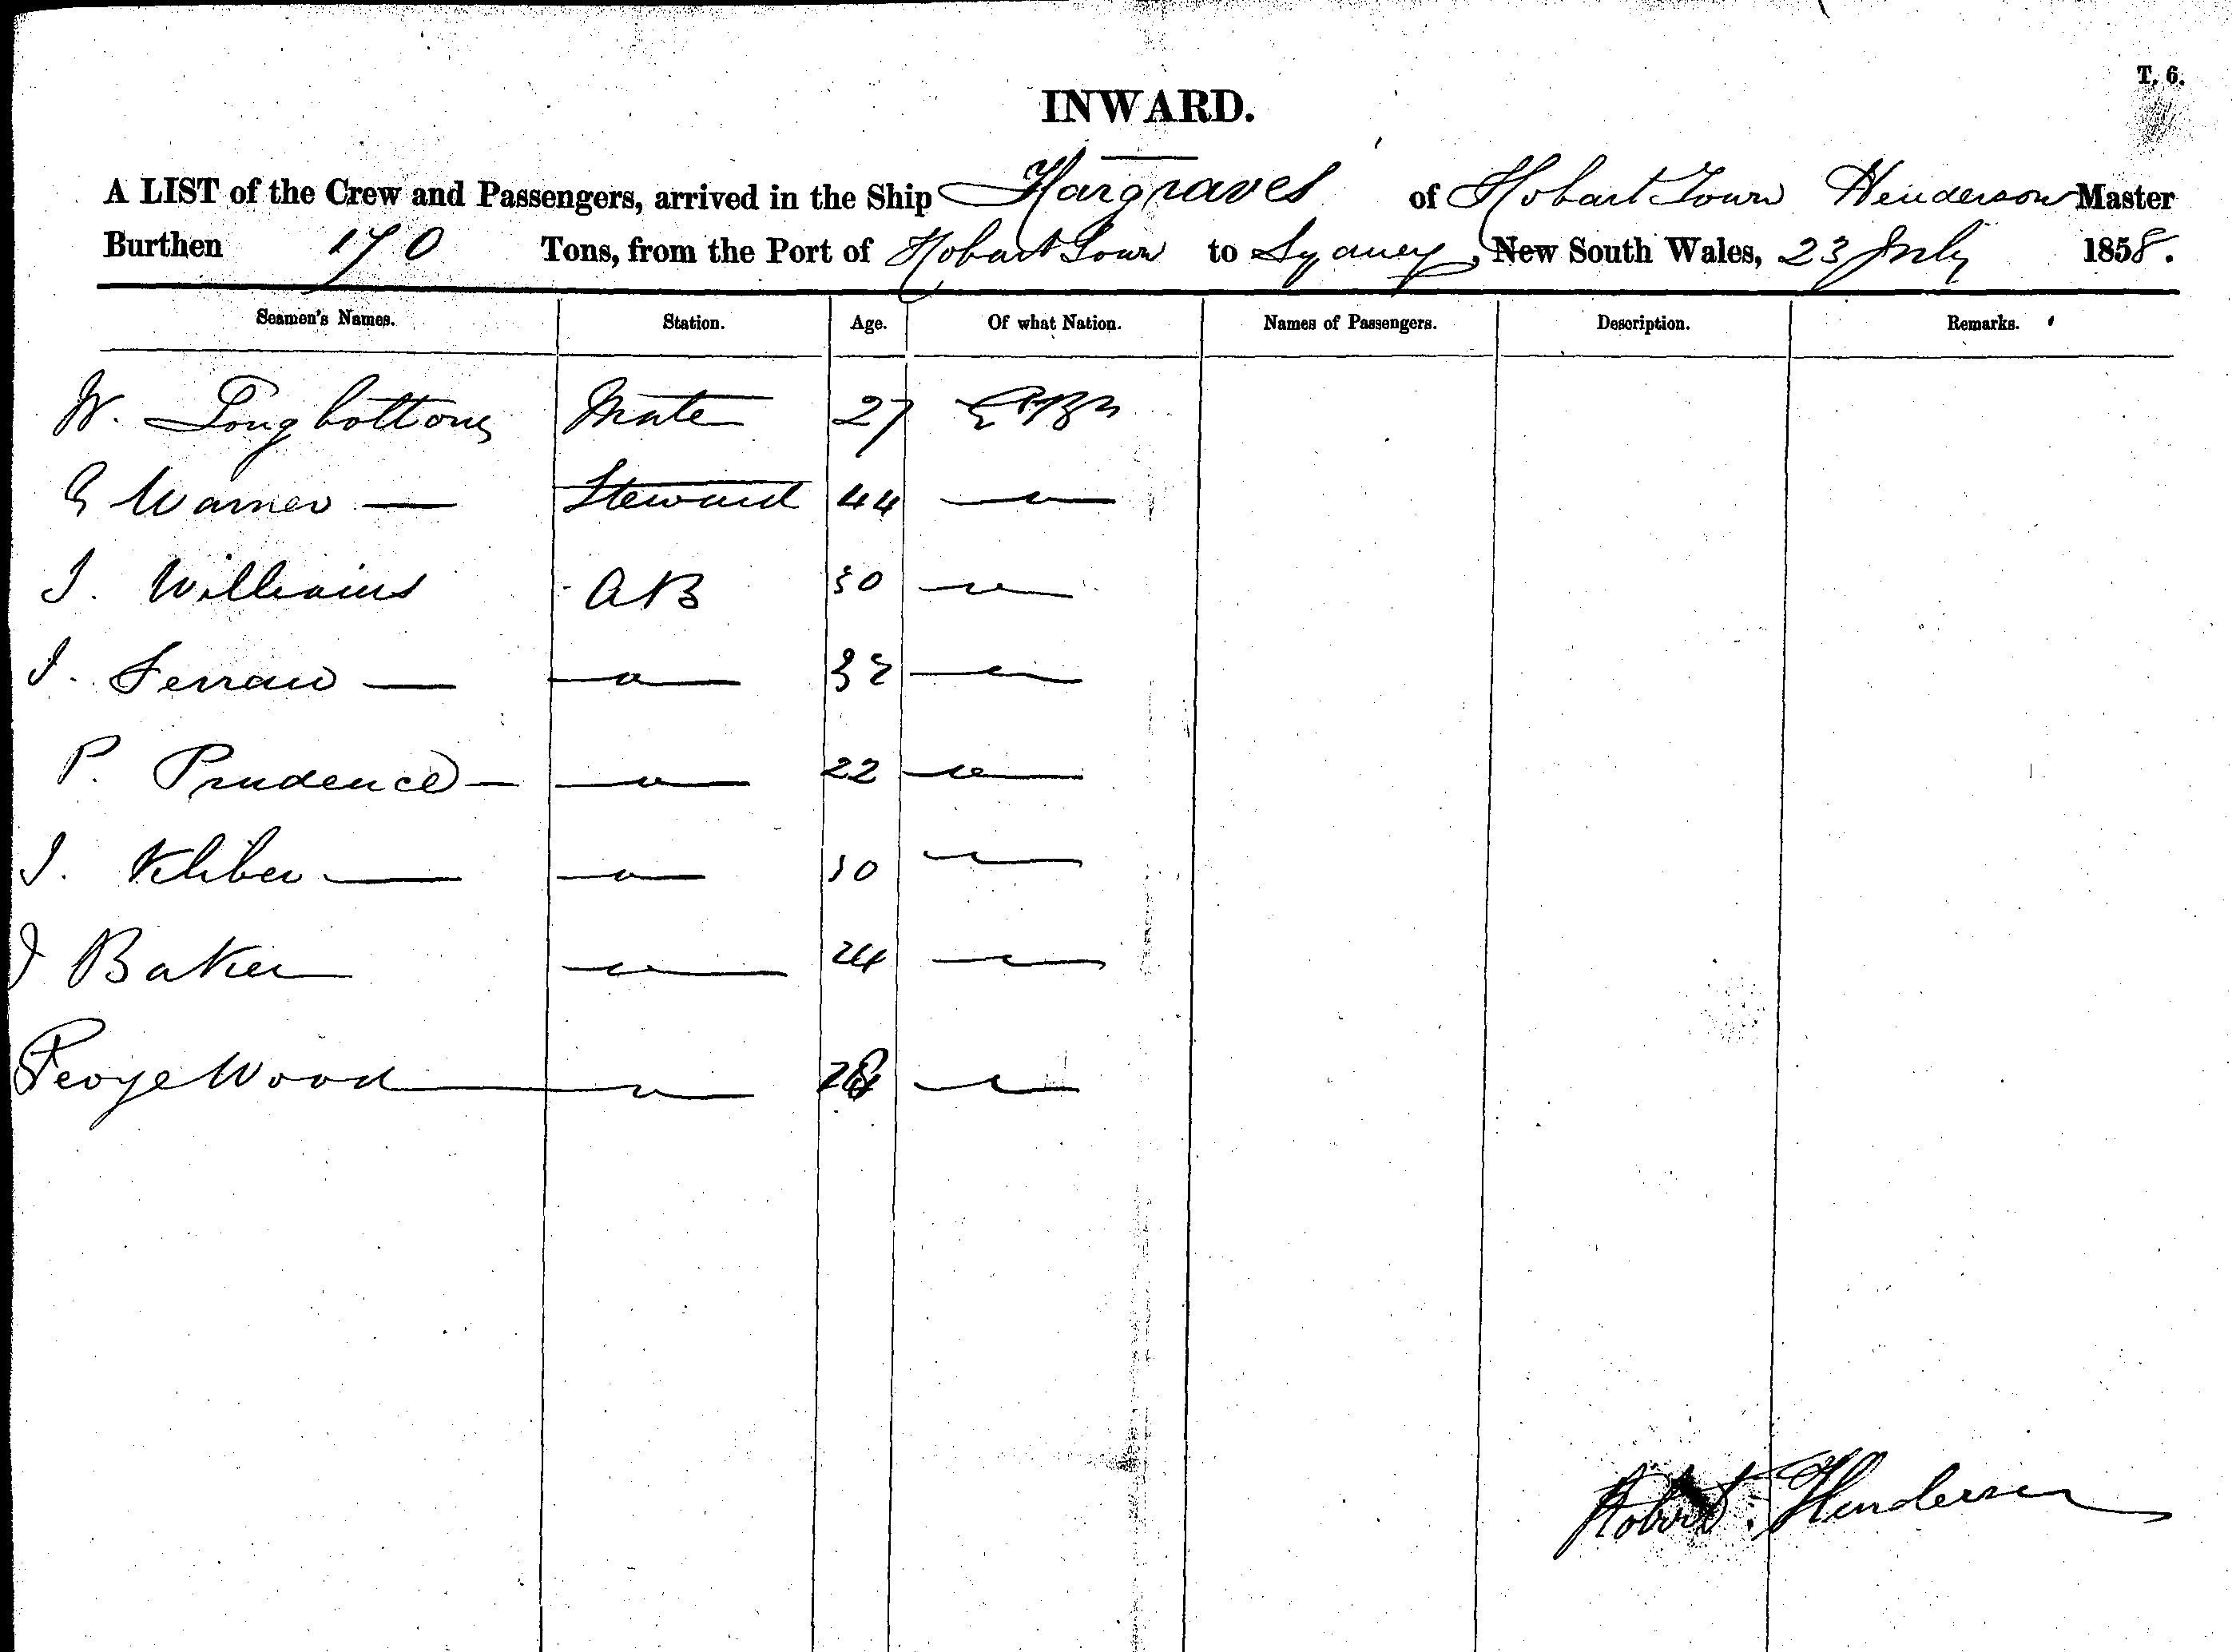 T. 6.
INWARD.
A LIST of the Crew and Passengers, arrived in the Ship Hargraves of Hobart Town Henderson Master
Burthen 170 Tons, from the Port of Hobart Town to Sydney, New South Wales, 23 July 1858.
Seamen's Names. Station. Age. Of what Nation. Names of Passengers. Description. Remarks.
W. Longbottom Mate 27
G Warner — Steward 44
J. Williams AB 30
J. — 32
P. Prudence — 22
J. — 30
J Baker 24
George Wood
Robert Henderson